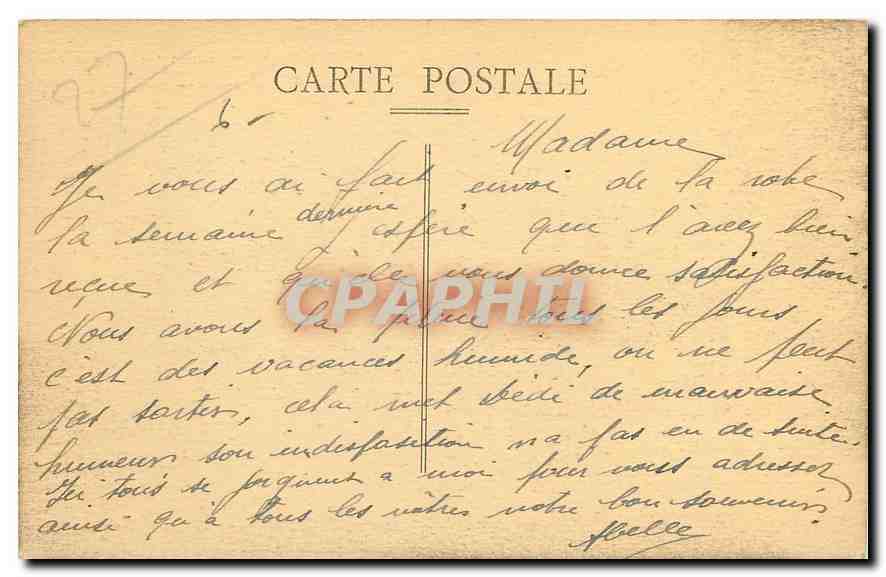 27
CARTE POSTALE
6-
Madame
Je vous ai fait envoi de la robe
la semaine dernière j'espère que l'avez bien
reçue et qu'elle vous donne satisfaction.
Nous avons la pluie tous les jours,
c'est des vacances humide, on ne peut
pas sortir, cela met Dédé de mauvaise
humeur, son indisposition n'a pas eu de suite.
Ici tous se joignent a moi pour vous adresser
ainsi qu'à tous les vôtres notre bon souvenir
Abelle
CPAPHIL